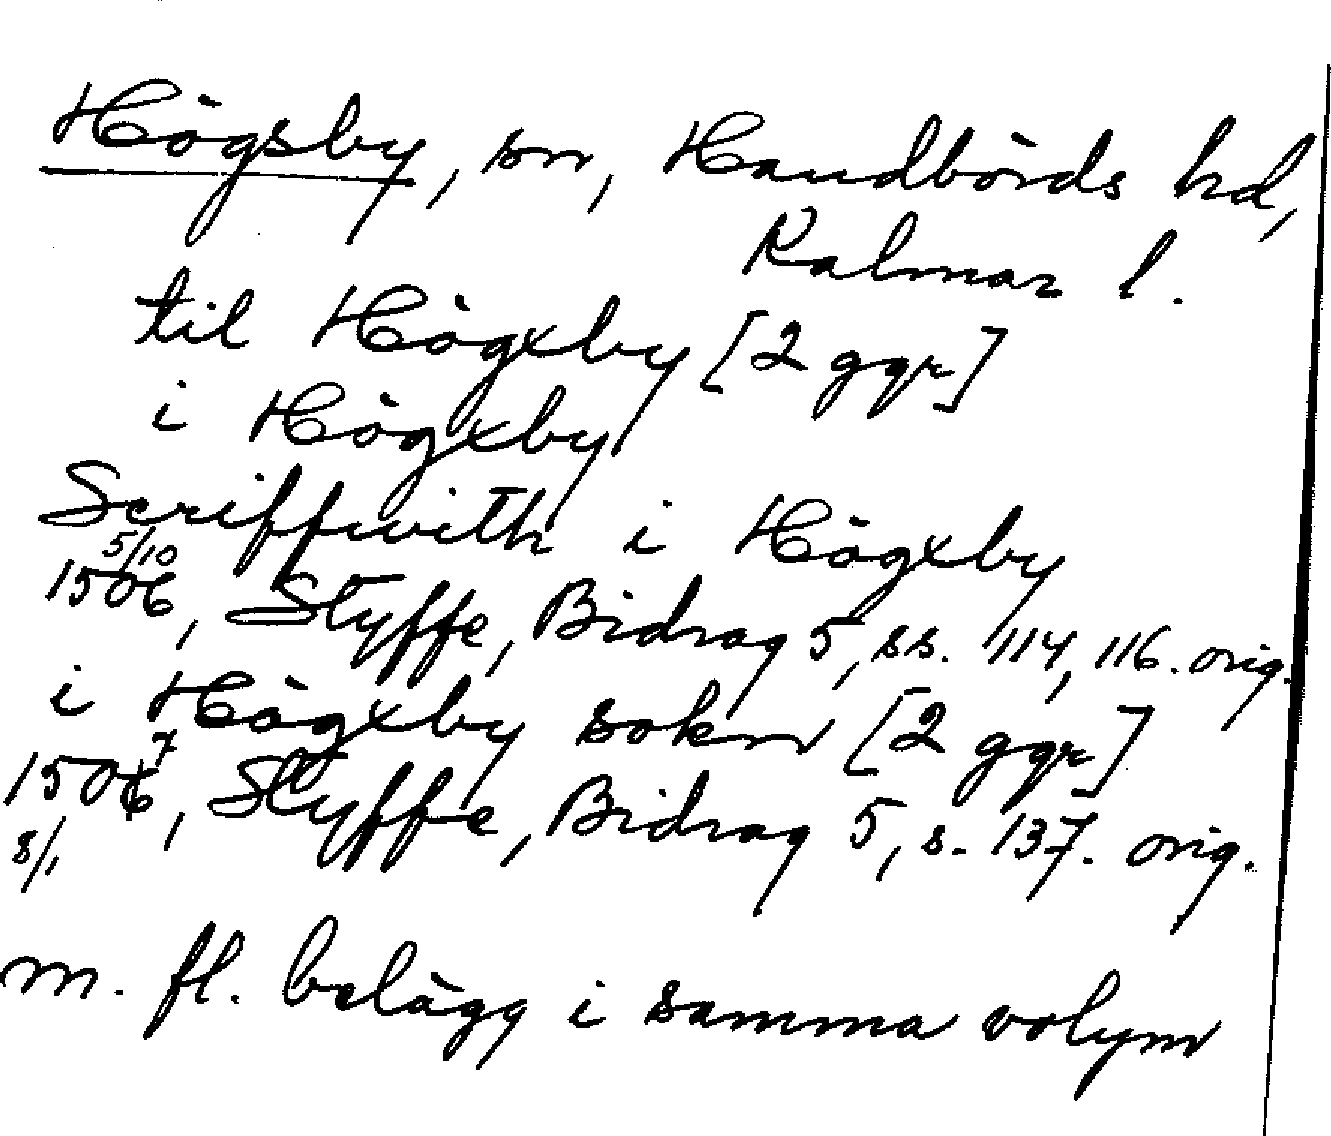 Högsby, sn, Handbörds hd,
Kalmar l.
til Högxby [2 ggr]
i Högxby
Scriffwith i Högxby
5/10
1506, Styffe, Bidrag 5, ss. 114, 116. orig.
i Högxby sokn [2 ggr]
7
1506, Styffe, Bidrag 5, s. 137. orig.
8/1
m. fl. belägg i samma volym